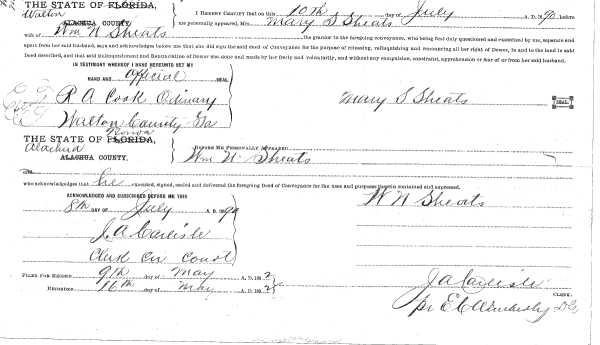 THE STATE OF FLORIDA,
Walton
ALACHUA COUNTY.
I HEREBY CERTIFY that on this 10th day of July A. D. 1890 before
me personally appeared, Mary S Sheats
wife of Wm N Sheats the grantor in the foregoing conveyance, who being first duly questioned and examined by me, separate and
apart from her said husband, says and acknowledges before me that she did sign the said deed of Conveyance for the purpose of releasing, relinquishing and renouncing all her right of Dower, in and to the land in said
Deed described, and that said Relinquishment and Renunciation of Dower was done and made by her freely and voluntarily, and without any compulsion, constraint, apprehension or fear of or from her said husband.
IN TESTIMONY WHEREOF I HAVE HEREUNTO SET MY
HAND AND Official SEAL
R A Cook Ordinary
Walton County Ga
Mary S Sheats
SEAL.
Florida
THE STATE OF FLORIDA,
Alachua
ALACHUA COUNTY.
BEFORE ME PERSONALLY APPEARED
Wm N Sheats
who acknowledges that he executed, signed, sealed and delivered the foregoing Deed of Conveyance for the uses and purposes therein contained and expressed.
ACKNOWLEDGED AND SUBSCRIBED BEFORE ME THIS
8th DAY OF July A. D. 1890
J. A Carlisle
Clerk Cir Court
W N Sheats
FILED FOR RECORD 9th day of May A. D. 1892
RECORDED 16th day of May A. D. 1892
J A Carlisle
CLERK.
pr E C D.C.